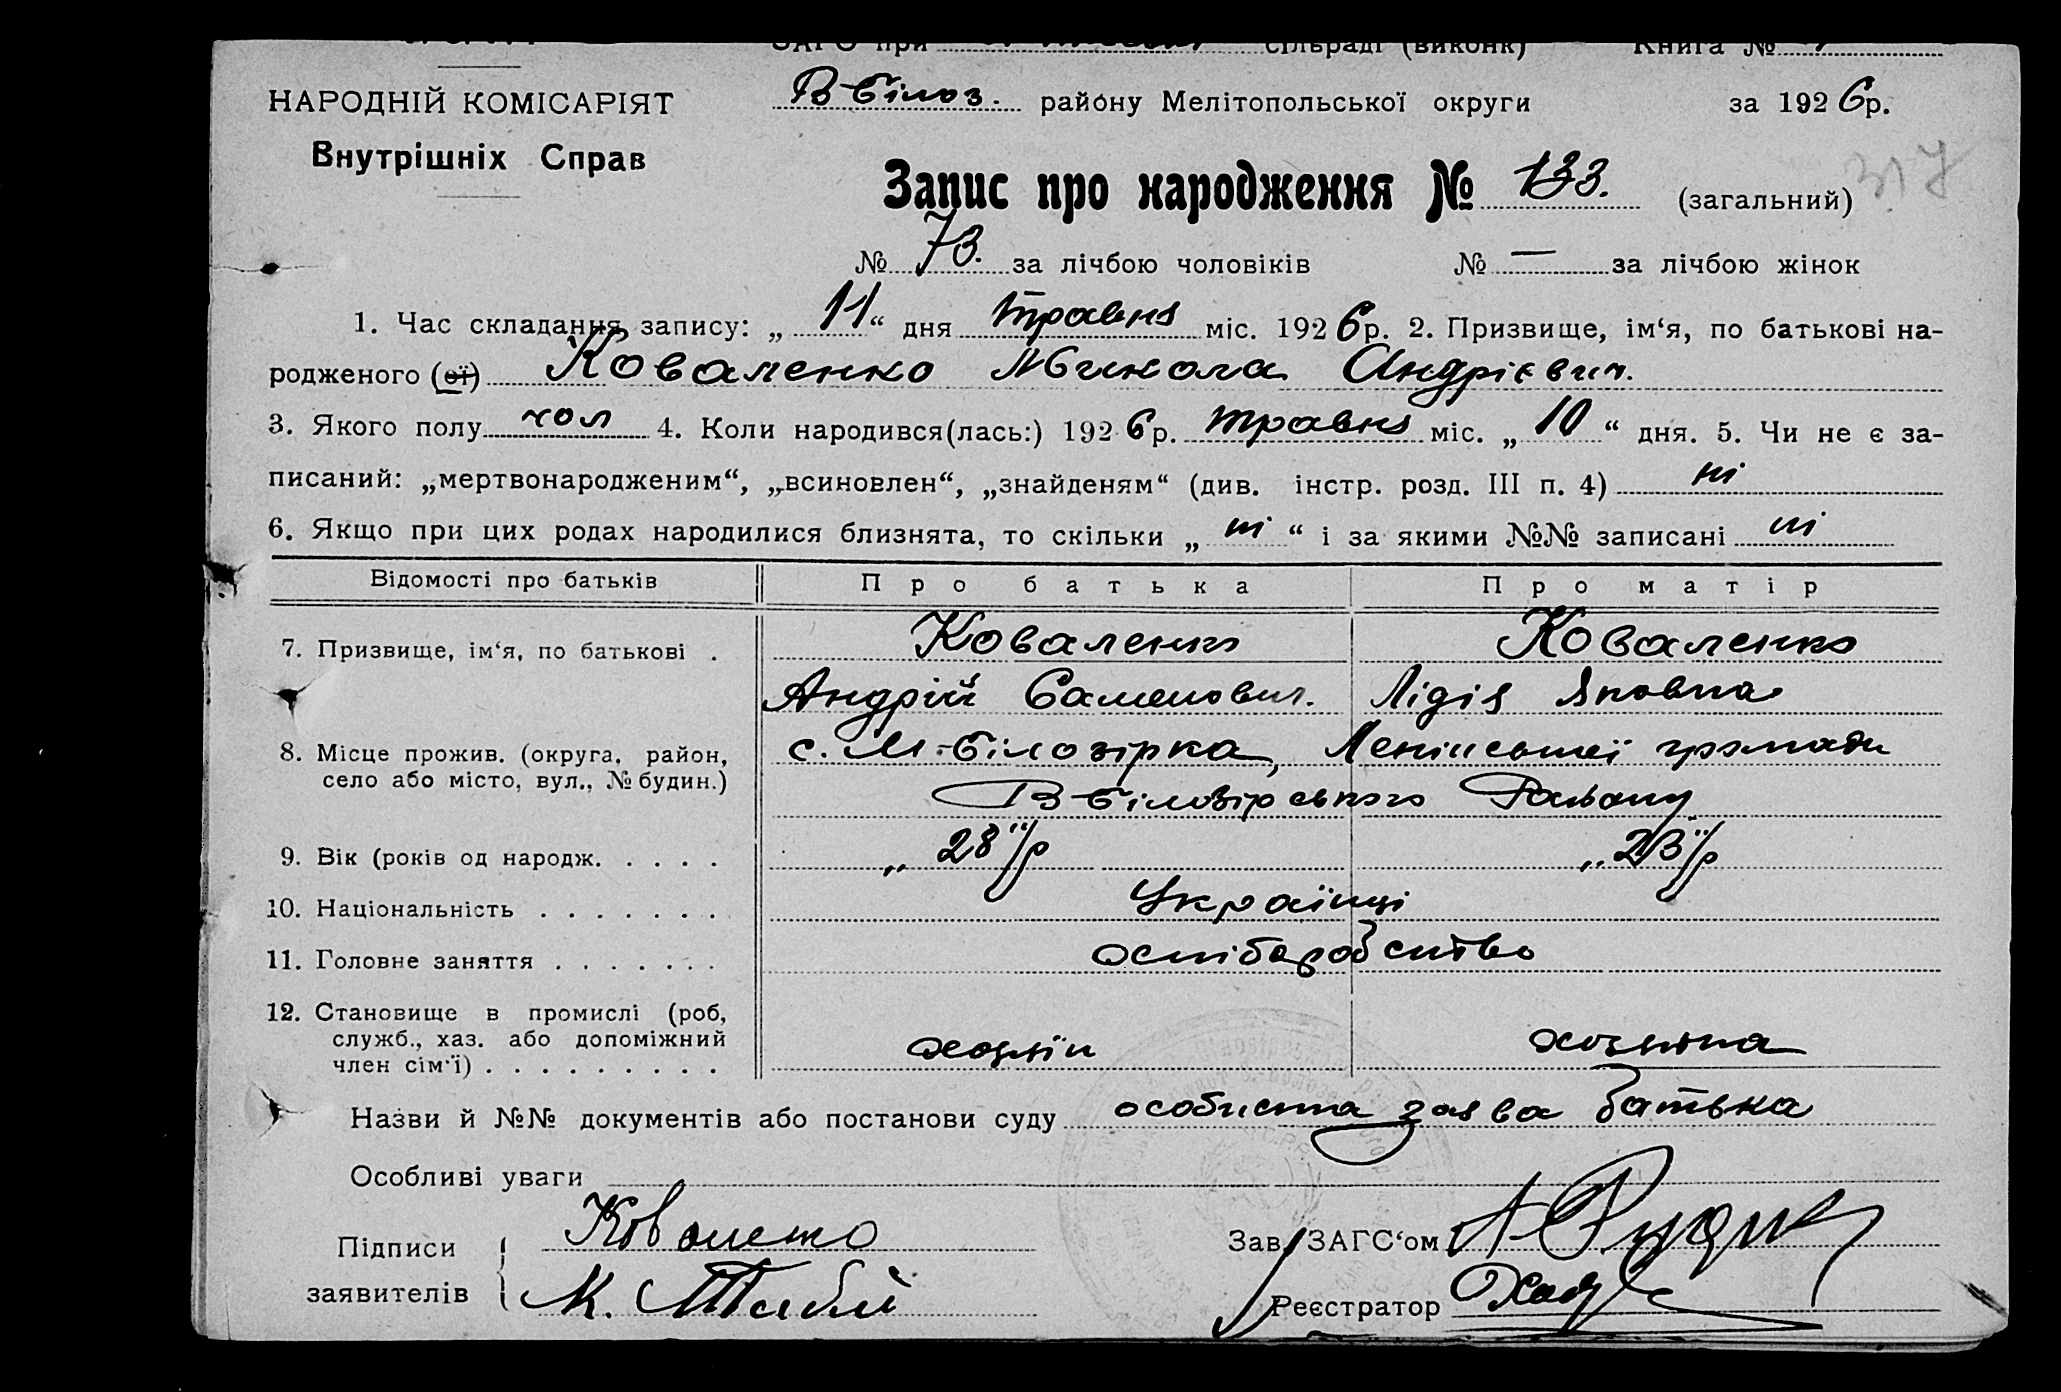 ЗАГС при сільраді (виконк) Книга №
НАРОДНІЙ КОМІСАРІЯТ
В Білоз. району Мелітопольської округи за 1926р.
Внутрішніх Справ
Запис про народження № 133. (загальний)
317
№ 73. за лічбою чоловіків № — за лічбою жінок
1. Час складання запису: „11“ дня травня міс. 1926р. 2. Призвище, ім‘я, по батькові на-
родженого (ої) Коваленко Микола Андрієвич.
3. Якого полу чол 4. Коли народився(лась:) 1926р. травня міс. „10“ дня. 5. Чи не є за-
писаний: „мертвонародженим“, „всиновлен“, „знайденям“ (див. інстр. розд. III п. 4) ні
6. Якщо при цих родах народилися близнята, то скільки „ні“ і за якими №№ записані ні
Відомості про батьків Про батька Про матір
7. Призвище, ім‘я, по батькові . Коваленко Коваленко
Андрій Семенович. Лідія Яковна
8. Місце прожив. (округа, район, с. М-Білозірка, Ленінської громади
село або місто, вул., № будин.)
В Білозірського Району
9. Вік (років од народж. . . . . „28“/р „23“/р
10. Національність . . . . . . . Українці
11. Головне заняття . . . . . . . хліборобство
12. Становище в промислі (роб,
служб., хаз. або допоміжний хазяїн хозяйка
член сім‘ї) . . . . . . . . .
Назви й №№ документів або постанови суду особиста заява батька
Особливі уваги
Підписи Коваленко Зав. ЗАГС‘ом
заявителів М. Реєстратор